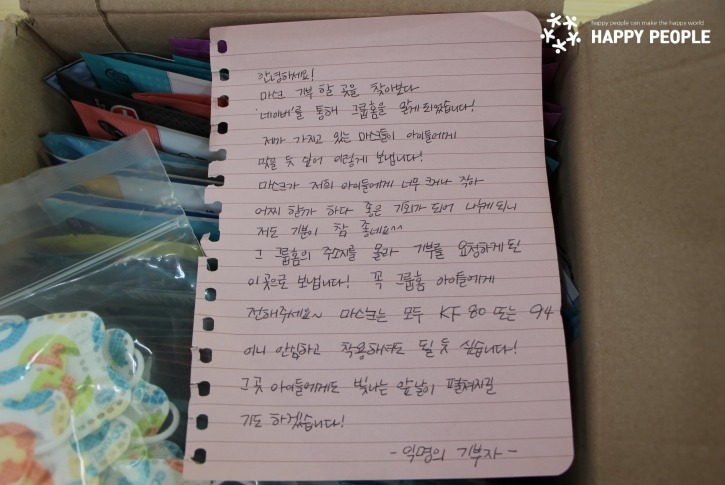 happy people can make the happy world
HAPPY PEOPLE
안녕하세요!
마스크 기부 할 곳을 찾아보다
'네이버'를 통해 그룹홈을 알게 되었습니다!
제가 가지고 있는 마스크들이 아이들에게
맞을 듯 싶어 이렇게 보냅니다!
마스크가 저희 아이들에게 너무 크거나 작아
어찌 할까 하다 좋은 기회가 되어 나누게 되니
저도 기분이 참 좋네요^^
그 그룹홈의 주소지를 몰라 기부를 요청하게 된
이곳으로 보냅니다! 꼭 그룹홈 아이들에게
전해주세요~ 마스크는 모두 KF 80 또는 94
이니 안심하고 착용하셔도 될 듯 싶습니다!
그곳 아이들에게도 빛나는 앞날이 펼쳐지길
기도 하겠습니다!
- 익명의 기부자 -